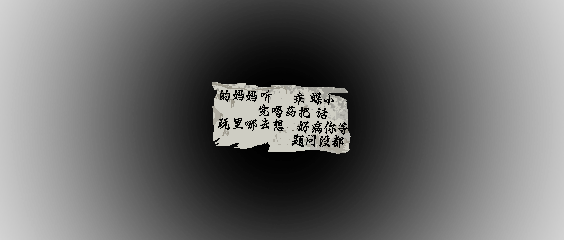 小蝶 听妈妈的
话 把药喝完
等你病好 想去哪里玩
都没问题